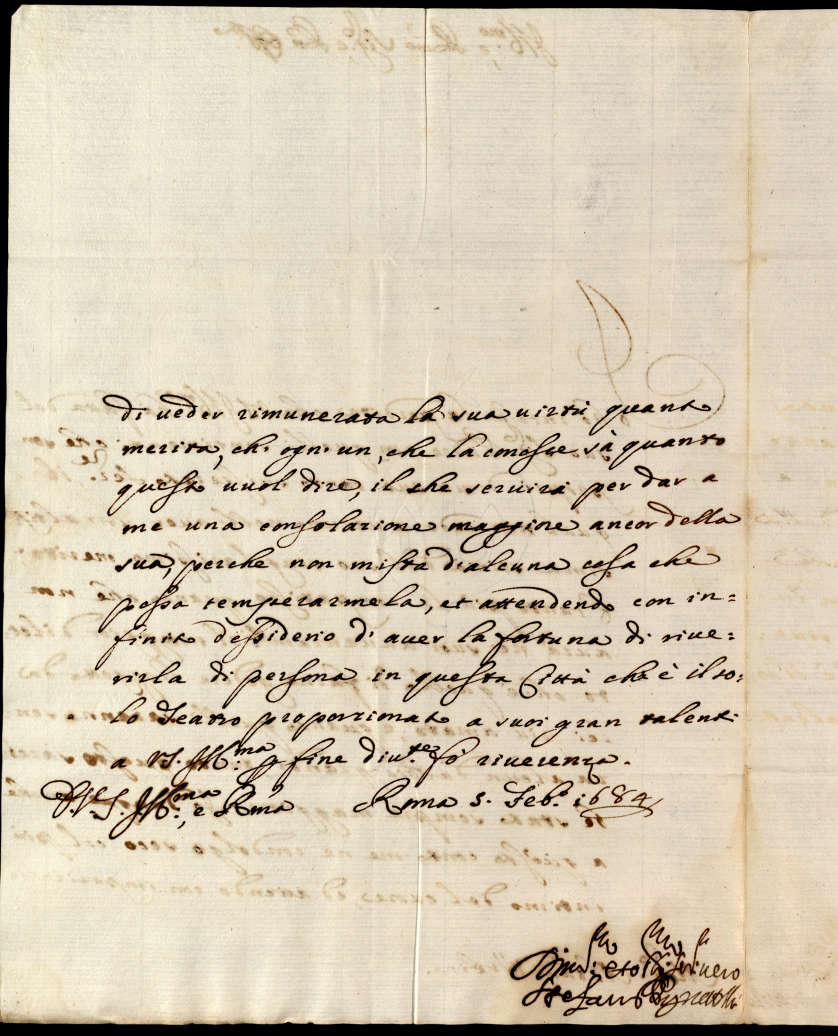 di ueder rimunerata la sua uirtù quanto
merita, ch' ogn' un, che la conosce sà quanto
questo uuol dire, il che seruirà per dar a
me una consolazione maggiore ancor della
sua, perche non mista d'alcuna cosa che
possa temperarmela, et attendendo con in=
finito desiderio d' auer la fortuna di riue=
rirla di persona in questa Città che è il so=
lo Teatro proporzionato a suoi gran talenti
a VS. Ill:ma per fine diu.te fò riuerenza.
D. V. S. Ill:ma, e R.ma Roma 5. Feb.o 1684
Diu:mo et ser: uero
Stefano Pignatelli